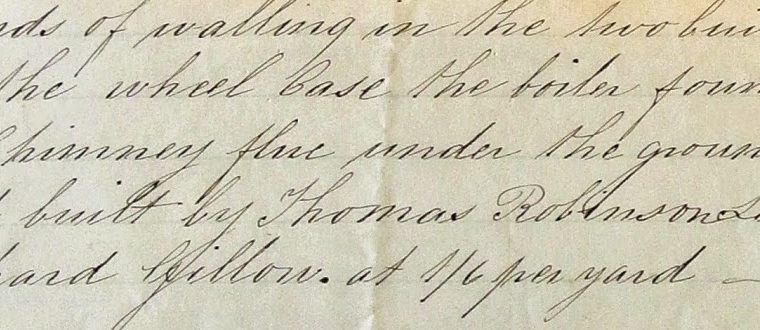 nds of walling in the two bui
the wheel Case the boiler foun
Chimney flue under the groun
built by Thomas Robinson
ard Gillow. at 1/6 per yard —